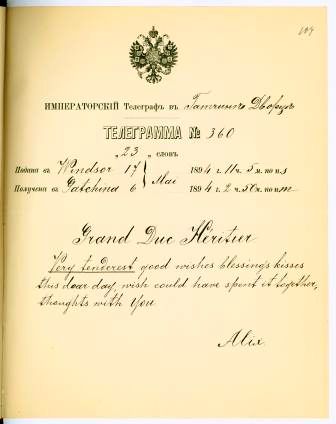 ИМПЕРАТОРСКІЙ Телеграфъ въ Гатчинъ Дворцъ
ТЕЛЕГРАММА № 360
„23„ словъ
Подана въ Windsor 17 Mai 1894 г. 11 ч. 5 м. по п.
Получена въ Gatchina 6 1894 г. 2 ч. 50 м. по п.
Grand Duc Héritier
Very tenderest, good wishes blessings kisses
this dear day, wish could have spent it together,
thoughts with you
Alix